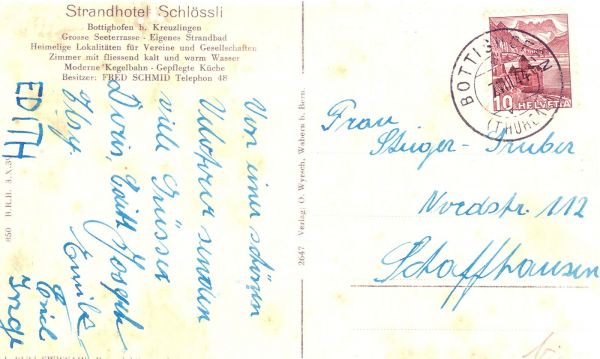 Strandhotel Schlössli
Bottighofen b. Kreuzlingen
Grosse Seeterrasse - Eigenes Strandbad
Heimelige Lokalitäten für Vereine und Gesellschaften
Zimmer mit fliessend kalt und warm Wasser
Moderne Kegelbahn - Gepflegte Küche
Besitzer: FRED SCHMID Telephon 48
Von einer schönen
Velotour senden
viele Grüsse
Doris, Edith, Joseph
Emil
EDITH
850 B.R.B. 3.X.39
2647 Verlag: O. Wyrsch, Wabern b. Bern.
BOTTIGHOFEN
(THURGAU)
10 HELVETIA
Frau
Steiger-
Nordstr. 112
Schaffhausen